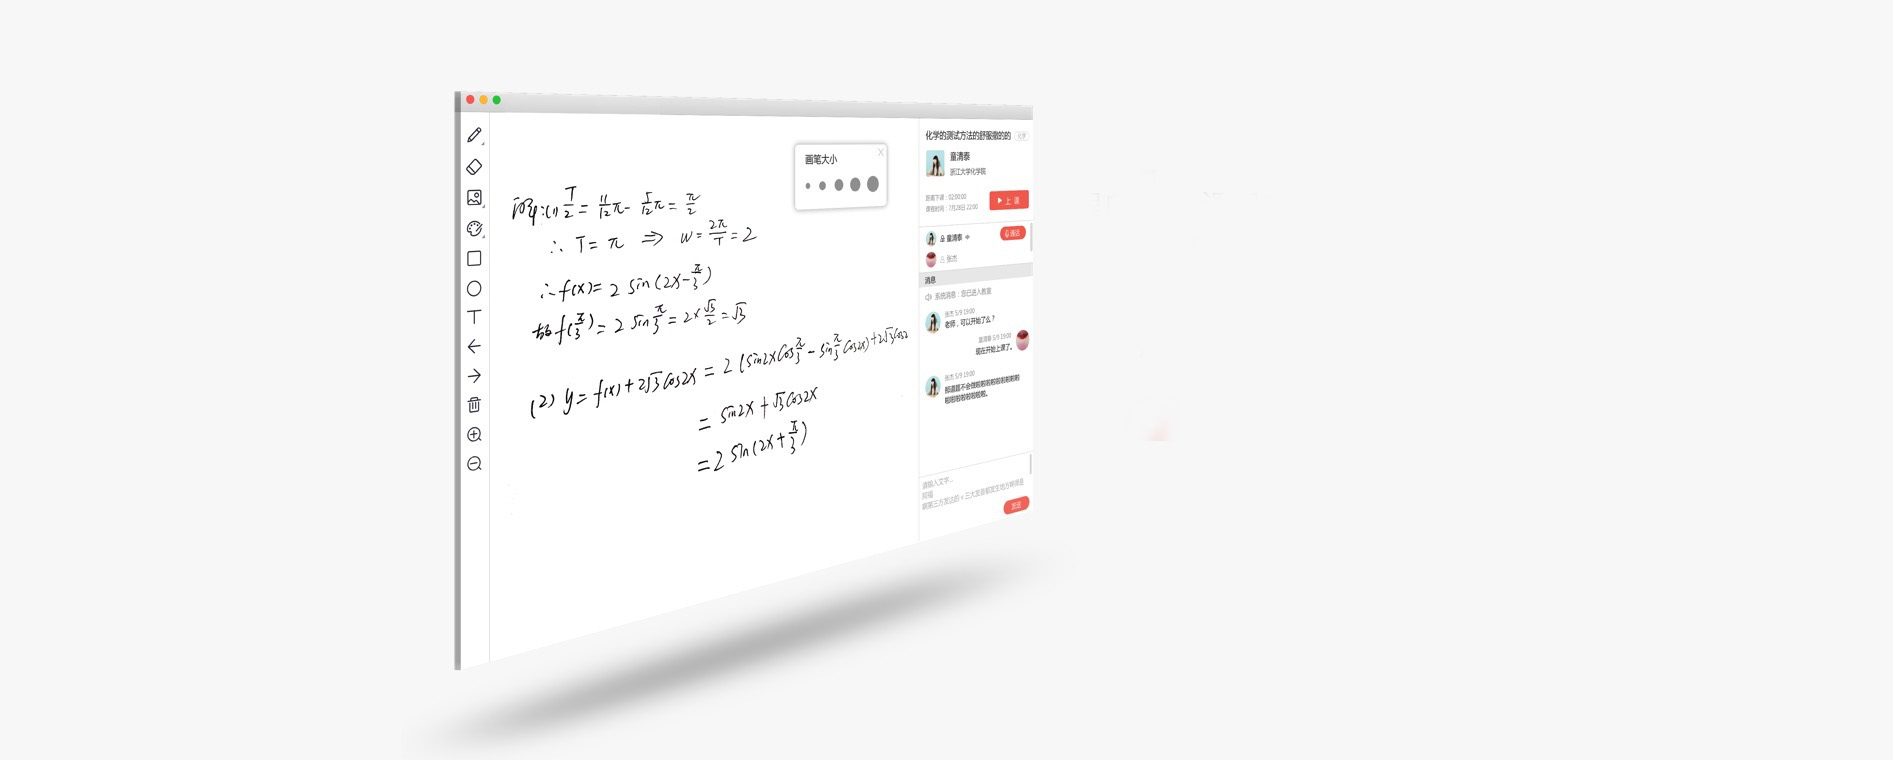 画笔大小 X
解:(1) T/2 = 11/12 π - 5/12 π = π/2
∴ T = π ⇒ w = 2π/T = 2
∴ f(x) = 2 sin(2x - π/3)
故 f(π/3) = 2 sin π/3 = 2 × √3/2 = √3
(2) y = f(x) + 2√3 cos2x = 2 (sin2x cos π/3 - sin π/3 cos2x) + 2√3 cos2
= sin2x + √3 cos2x
= 2 sin(2x + π/3)
化学的测试方法的舒服撒的的 化学
童清泰
浙江大学化学院
距离下课：02:00:00
课程时间：7月28日 22:00
上 课
童清泰
张杰
消息
系统消息：您已进入教室
张杰 5/9 19:00
老师，可以开始了么？
童清泰 5/9 19:00
现在开始上课了。
张杰 5/9 19:00
那道题不会做啦啦啦啦啦啦啦啦啦
啦啦啦啦啦啦啦啦。
请输入文字...
发送